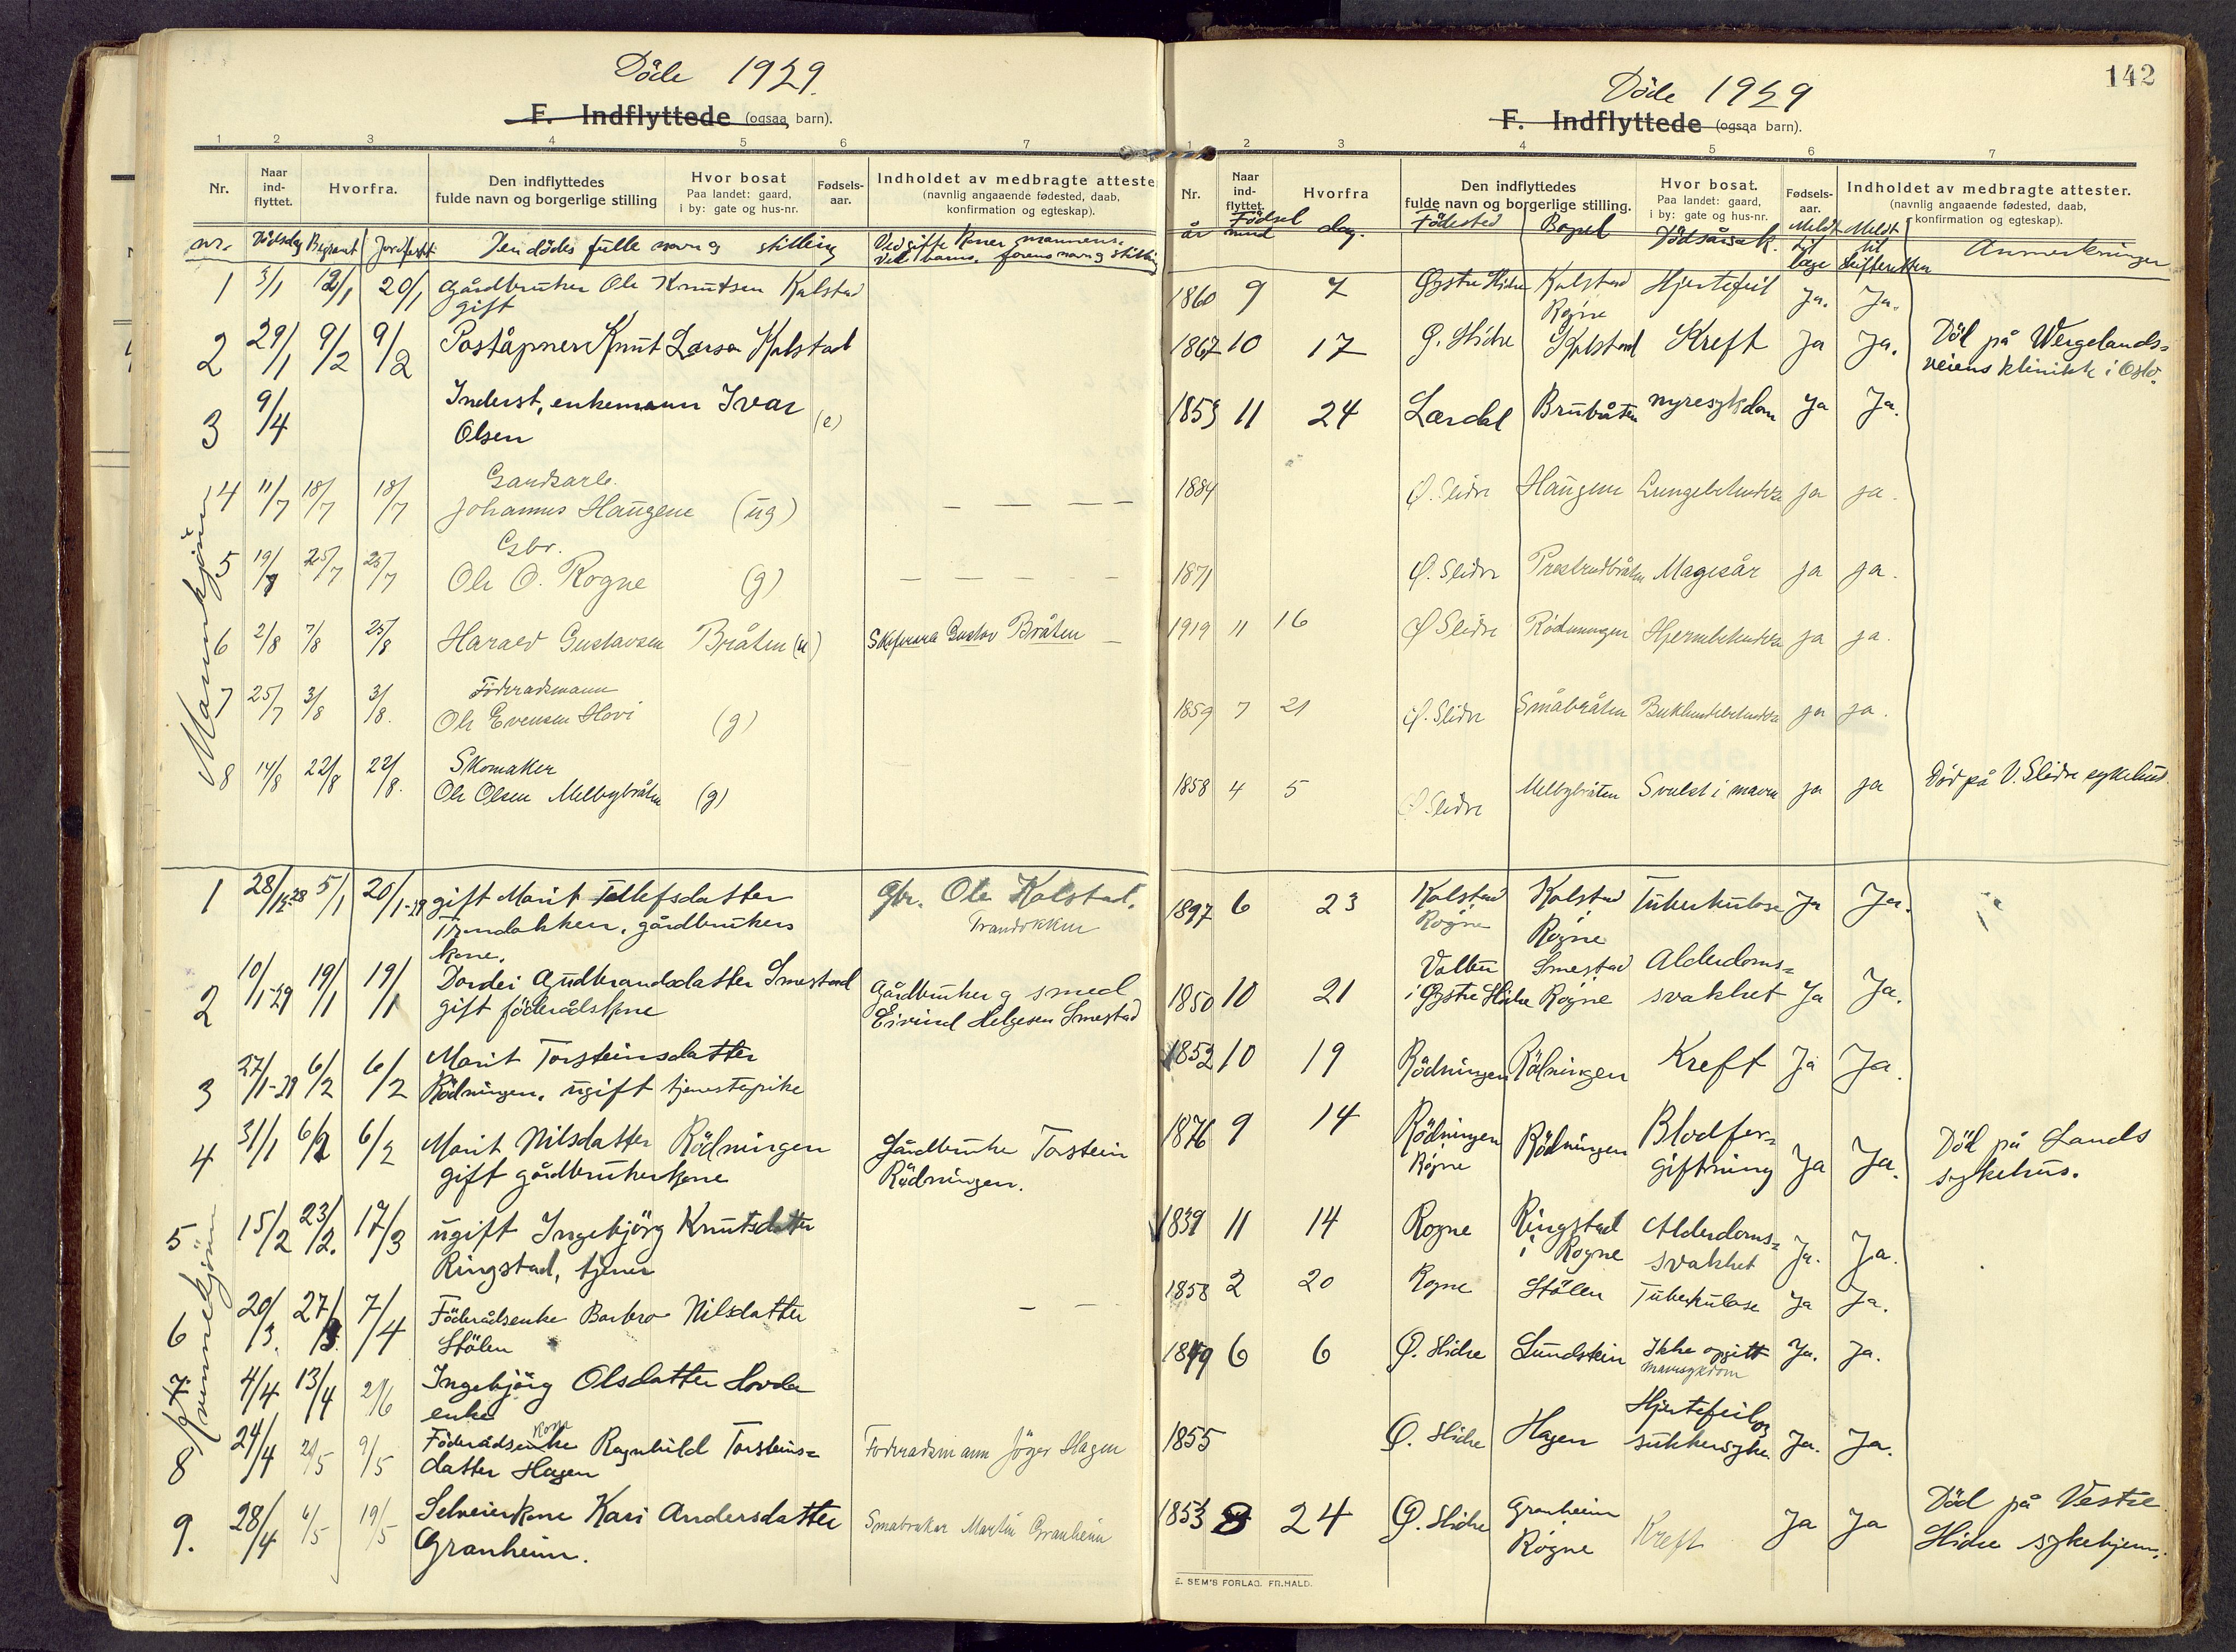 Döde 1929.
F. Indflyttede (ogsaa barn).
1 2 3 4 5 6 7
Nr.
Naar ind- flyttet.
Hvorfra.
Den indflyttedes fulde navn og borgerlige stilling
Hvor bosat Paa landet: gaard, i by: gate og hus-nr.
Fødsels- aar.
Indholdet av medbragte atteste (navnlig angaaende fødested, daab, konfirmation og egteskap).
nr. Dödsdag Begravet Jordfestet Den dödes fulle navn og stilling Ved gifte koner mannens,
Ved barns, farens navn og stilling
1 3/1 12/1 20/1 gårdbruker Ole Knutsen Kalstad
gift
2 29/1 9/2 9/2 Poståpner Knut Larsen Kalstad
3 9/4 Inderst, enkemann Ivar (e)
Olsen
Mannkjönn
4 11/7 18/7 18/7 Gardsarb.
Johannes Haugene (ug) — — — —
5 19/7 25/7 25/7 Gbr.
Ole O. Rogne (g) — — — —
6 2/8 7/8 25/8 Harald Gustavsen Bråten (u) Skogsarb Gustav Bråten —
7 25/7 3/8 3/8. Föderadsmann
Ole Evensen Hovi (g)
8 14/8 22/8 22/8. Skomaker
Ole Olsen Melbybråten (g)
Kvinnekjönn
1 28/12-28 5/1 20/1-29 gift Marit Tollefsdatter Gbr. Ole Kalstad.
Trandokken, gårdbrukers Trandokken
kone.
2 10/1-29 19/1 19/1 Dordei Gudbrandsdatter Smestad Gårdbruker og smed
gift föderådskone Eivind Helgesen Smestad
3 27/1-29 6/2 6/2 Marit Torsteinsdatter
Rödningen, ugift tjenestepike
4 31/1 6/2 6/2 Marit Nilsdatter Rödningen Gårdbruker Torstein
gift gårdbrukerkone Rödningen.
5 15/2 23/2. 17/3 ugift Ingebjörg Knutsdatter
Ringstad, tjener
6 20/3. 27/3. 7/4 Föderådsenke Barbro Nilsdatter — —
Stölen
7 4/4 13/4 2/6 Ingebjörg Olsdatter Hovda
enke
8 24/4 2/5 9/5 Föderådsenke kone Ragnhild Torsteins= Föderadsmann Jöger Hagen
datter Hagen
9. 28/4 6/5 19/5 Selveierkone Kari Andersdatter Småbruker Martin Granheim
Granheim.
142
Döde 1929
F. Indflyttede (ogsaa barn).
1 2 3 4 5 6 7
Nr.
Naar ind- flyttet.
Hvorfra
Den indflyttedes fulde navn og borgerlige stilling.
Hvor bosat. Paa landet: gaard, i by: gate og hus-nr.
Fødsels- aar.
Indholdet av medbragte attester. (navnlig angaaende fødested, daab, konfirmation og egteskap).
Födsel
år mnd dag. Födested Bopel Dödsårsak. Meldt til lege Meldt til skifteretten Anmerkninger
1860 9 7 Øystre Slidre Kalstad Hjertefeil Ja. Ja.
Rogne
1867 10 17 Ø. Slidre Kalstad Kreft Ja Ja. Död på Wergelands=
veiens klinikk i Oslo.
1853 11 24 Lærdal Brubåten nyresykdom Ja Ja.
1884 Ø. Slidre Haugene Lungebetendelse ja ja.
1871 Ø. Slidre Prestrudbråten Magesår ja ja.
1919 11 16 Ø Slidre Rödningen Hjernebetendelse ja ja.
1859 7 21 Ø. Slidre Småbråten Bukhindebetendelse ja ja.
1858 4 5 Ø Slidre Melbybråten Svulst i maven ja ja Död på V. Slidre sykehus.
1897 6 23 Kalstad Kalstad Tuberkulose Ja Ja.
Rogne Rogne
1850 10 21 Volbu Smestad Alderdoms=
i Øystre Slidre Rogne svakhet Ja Ja.
1852 10 19 Rödningen Rödningen Kreft Ja Ja.
1876 9 14 Rödningen Rödningen Blodfor=
Rogne giftning Ja Ja. Död på Lands
sykehus.
1839 11 14 Rogne Ringstad Alderdoms=
i Rogne svakhet Ja. Ja.
1858 2 20 Rogne Stölen Tuberkulose Ja Ja.
1849 6 6 Ø. Slidre Lundstein Ikke opgitt Ja. Ja.
mavesykdom
1855 Ø. Slidre Hagen Hjertefeil og
sukkersyke Ja. Ja.
1853 8 24 Ø. Slidre Granheim Kreft Ja Ja Död på Vestre
Rogne Slidre sykehjem.
E. SEM'S FORLAG. FR.HALD.